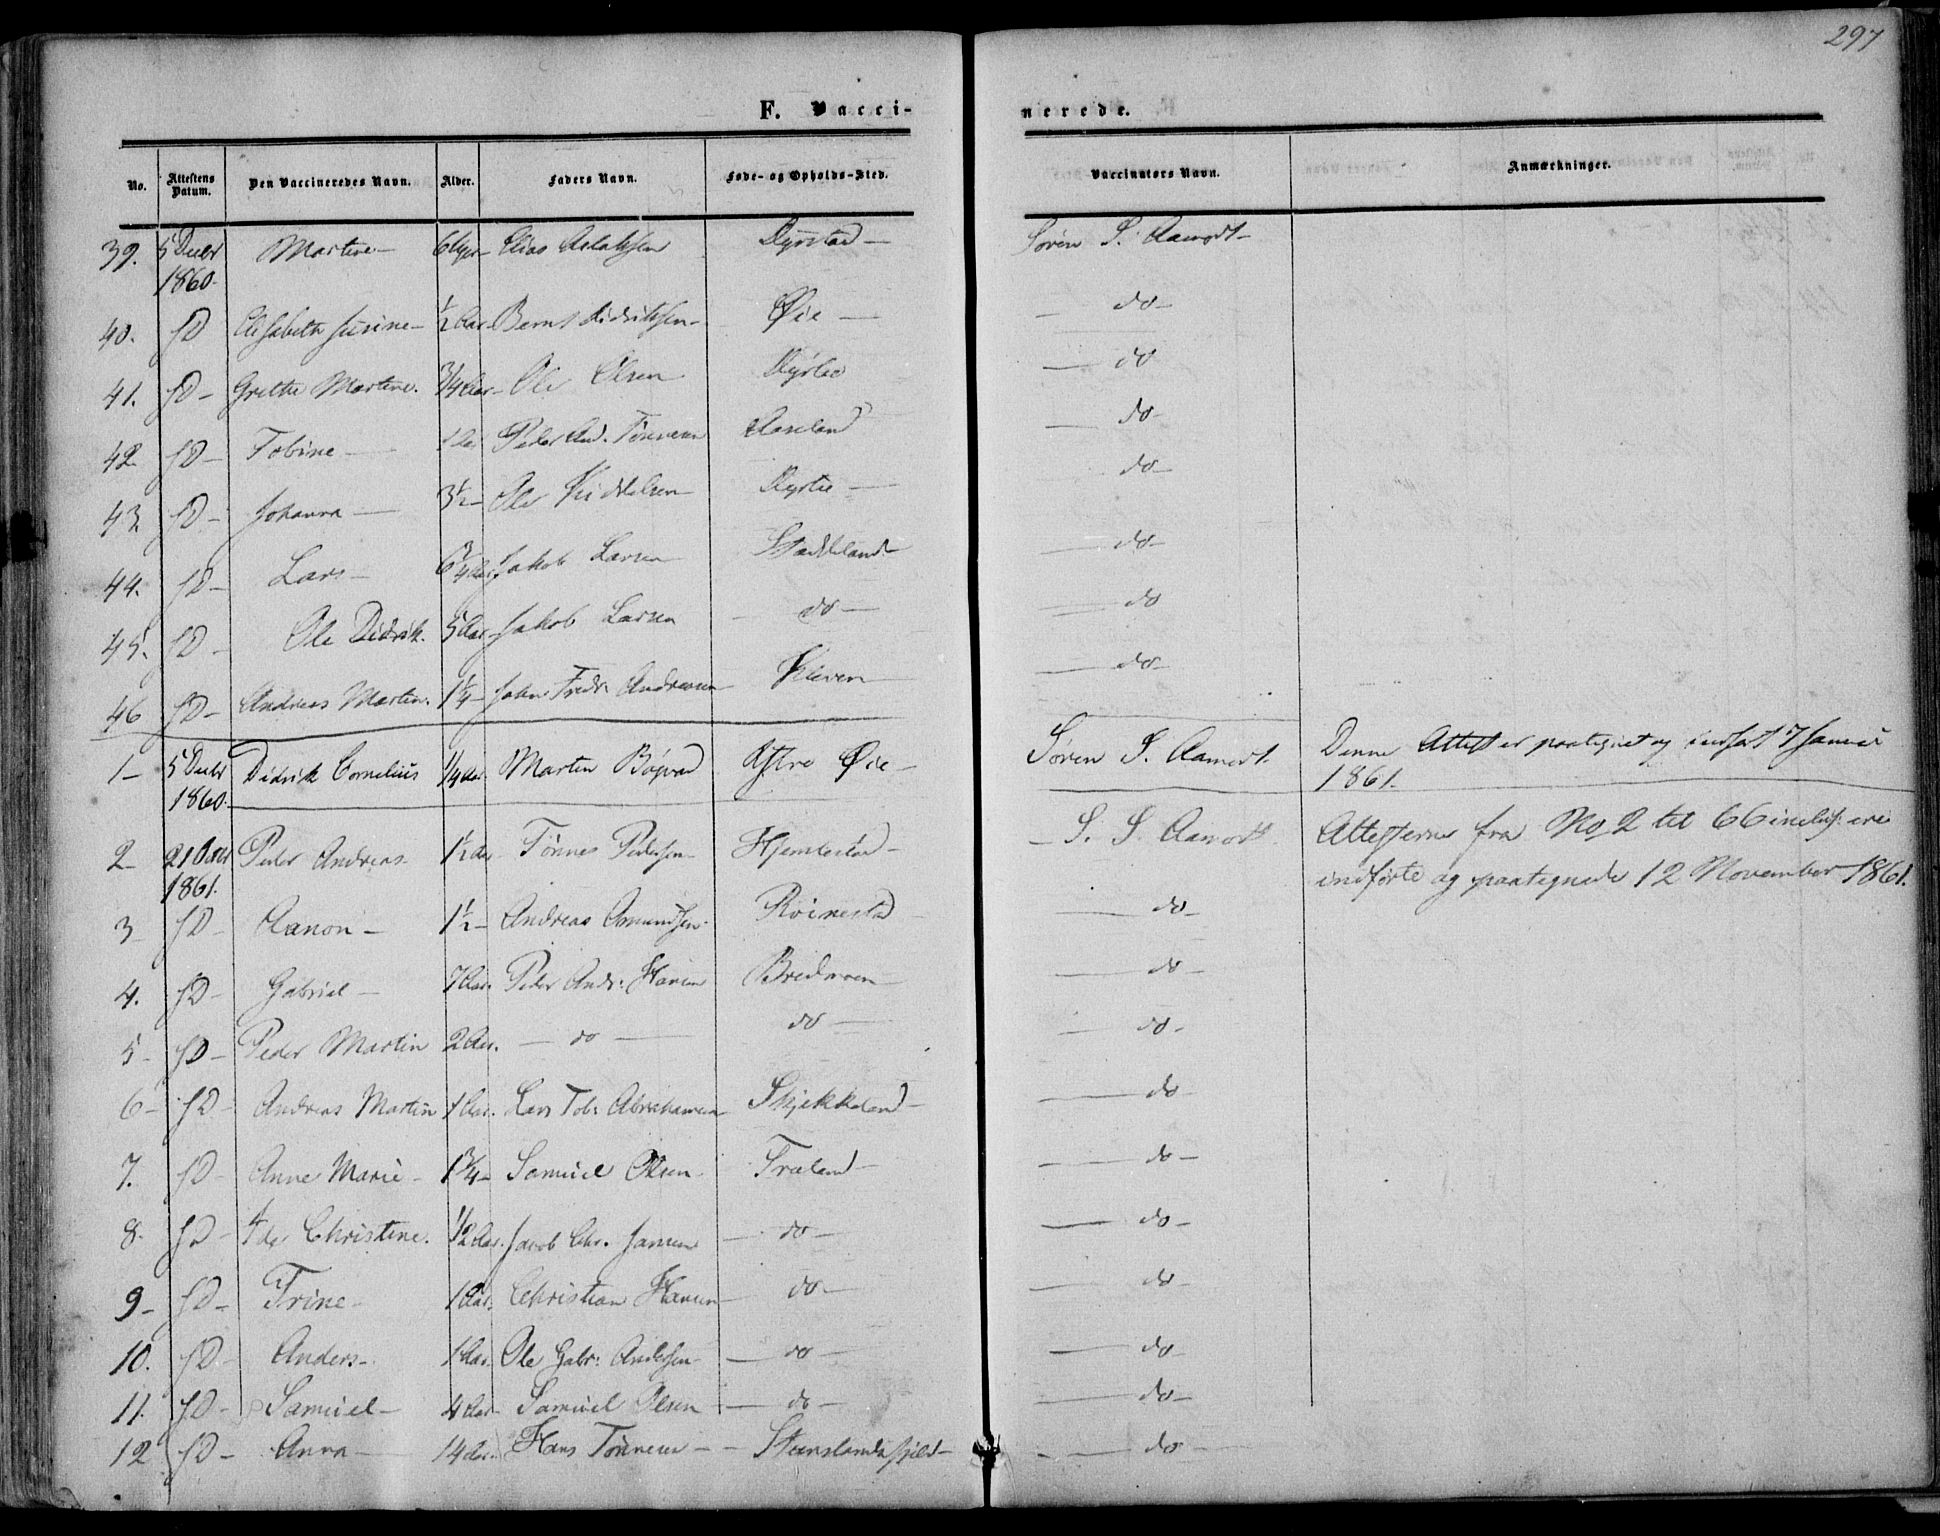 297
F. Vacci-
nerede.
No. Attestens Datum. Den Vaccineredes Navn. Alder. Faders Navn. Føde- og Opholds-Sted. Vaccinators Navn. Anmærkninger.
39. 5 Decbr 1860. Martine - Elias Aslaksen Dyrstad - Søren S. Aamodt
40. SD Elisabeth Susine - ½ Aar Bernt Didriksen - Øie - do -
41. SD - Grethe Martine. 3/4 Aar - Ole Olsen do
42. SD - Tobine - 1 Aar Peder And. Tønnesen Aaseland do -
43. SD - Johanna - 3½ - Ole do -
44. SD - Lars - 6 3/4 Aar Jakob Larsen do -
45. SD - Ole Didrik. 5 Aar - Jakob Larsen - do - do
46 SD - Andreas Martin. 1¼ - John Fredr. Andreasen do -
1 - 5 Decbr 1860. Didrik Cornelius ¼ Aar Martin Øie - Søren S. Aamodt. Denne Attest er paategnet og indført 7 Januar
1861.
2 - 21 1861. Peder Andreas 1½ Aar Tønnes Pedersen - S. S. Aamodt. Attesterne fra No 2 til 66 inclus: ere
indførte og paategnede 12 November 1861.
3 - SD - Aanon - 1½ - Andreas Amundsen Røinestad do -
4. SD - Gabriel - 7 Aar. Peder Andr. Hansen do -
5 - SD - Peder Martin 2 Aar. - do - do - do -
6 - SD - Andreas Martin 1 Aar. Lars Tob. Abrahamsen Skjekkeland - do
7. SD - Anne Marie - 1 3/4 - Samuel Olsen Træland - do -
8. SD - Christine. ½ Aar. Jacob Chr. Jansen - do - do -
9 - SD - Trine - 1 Aar. Christian Hansen - do - do -
10. SD - Anders - 1 Aar. Ole Gabr. Andersen - do - do -
11. SD - Samuel - 4 Aar - Samuel Olsen - do - do -
12 SD - Anna - 14 Aar. Hans Tønnesen - do -